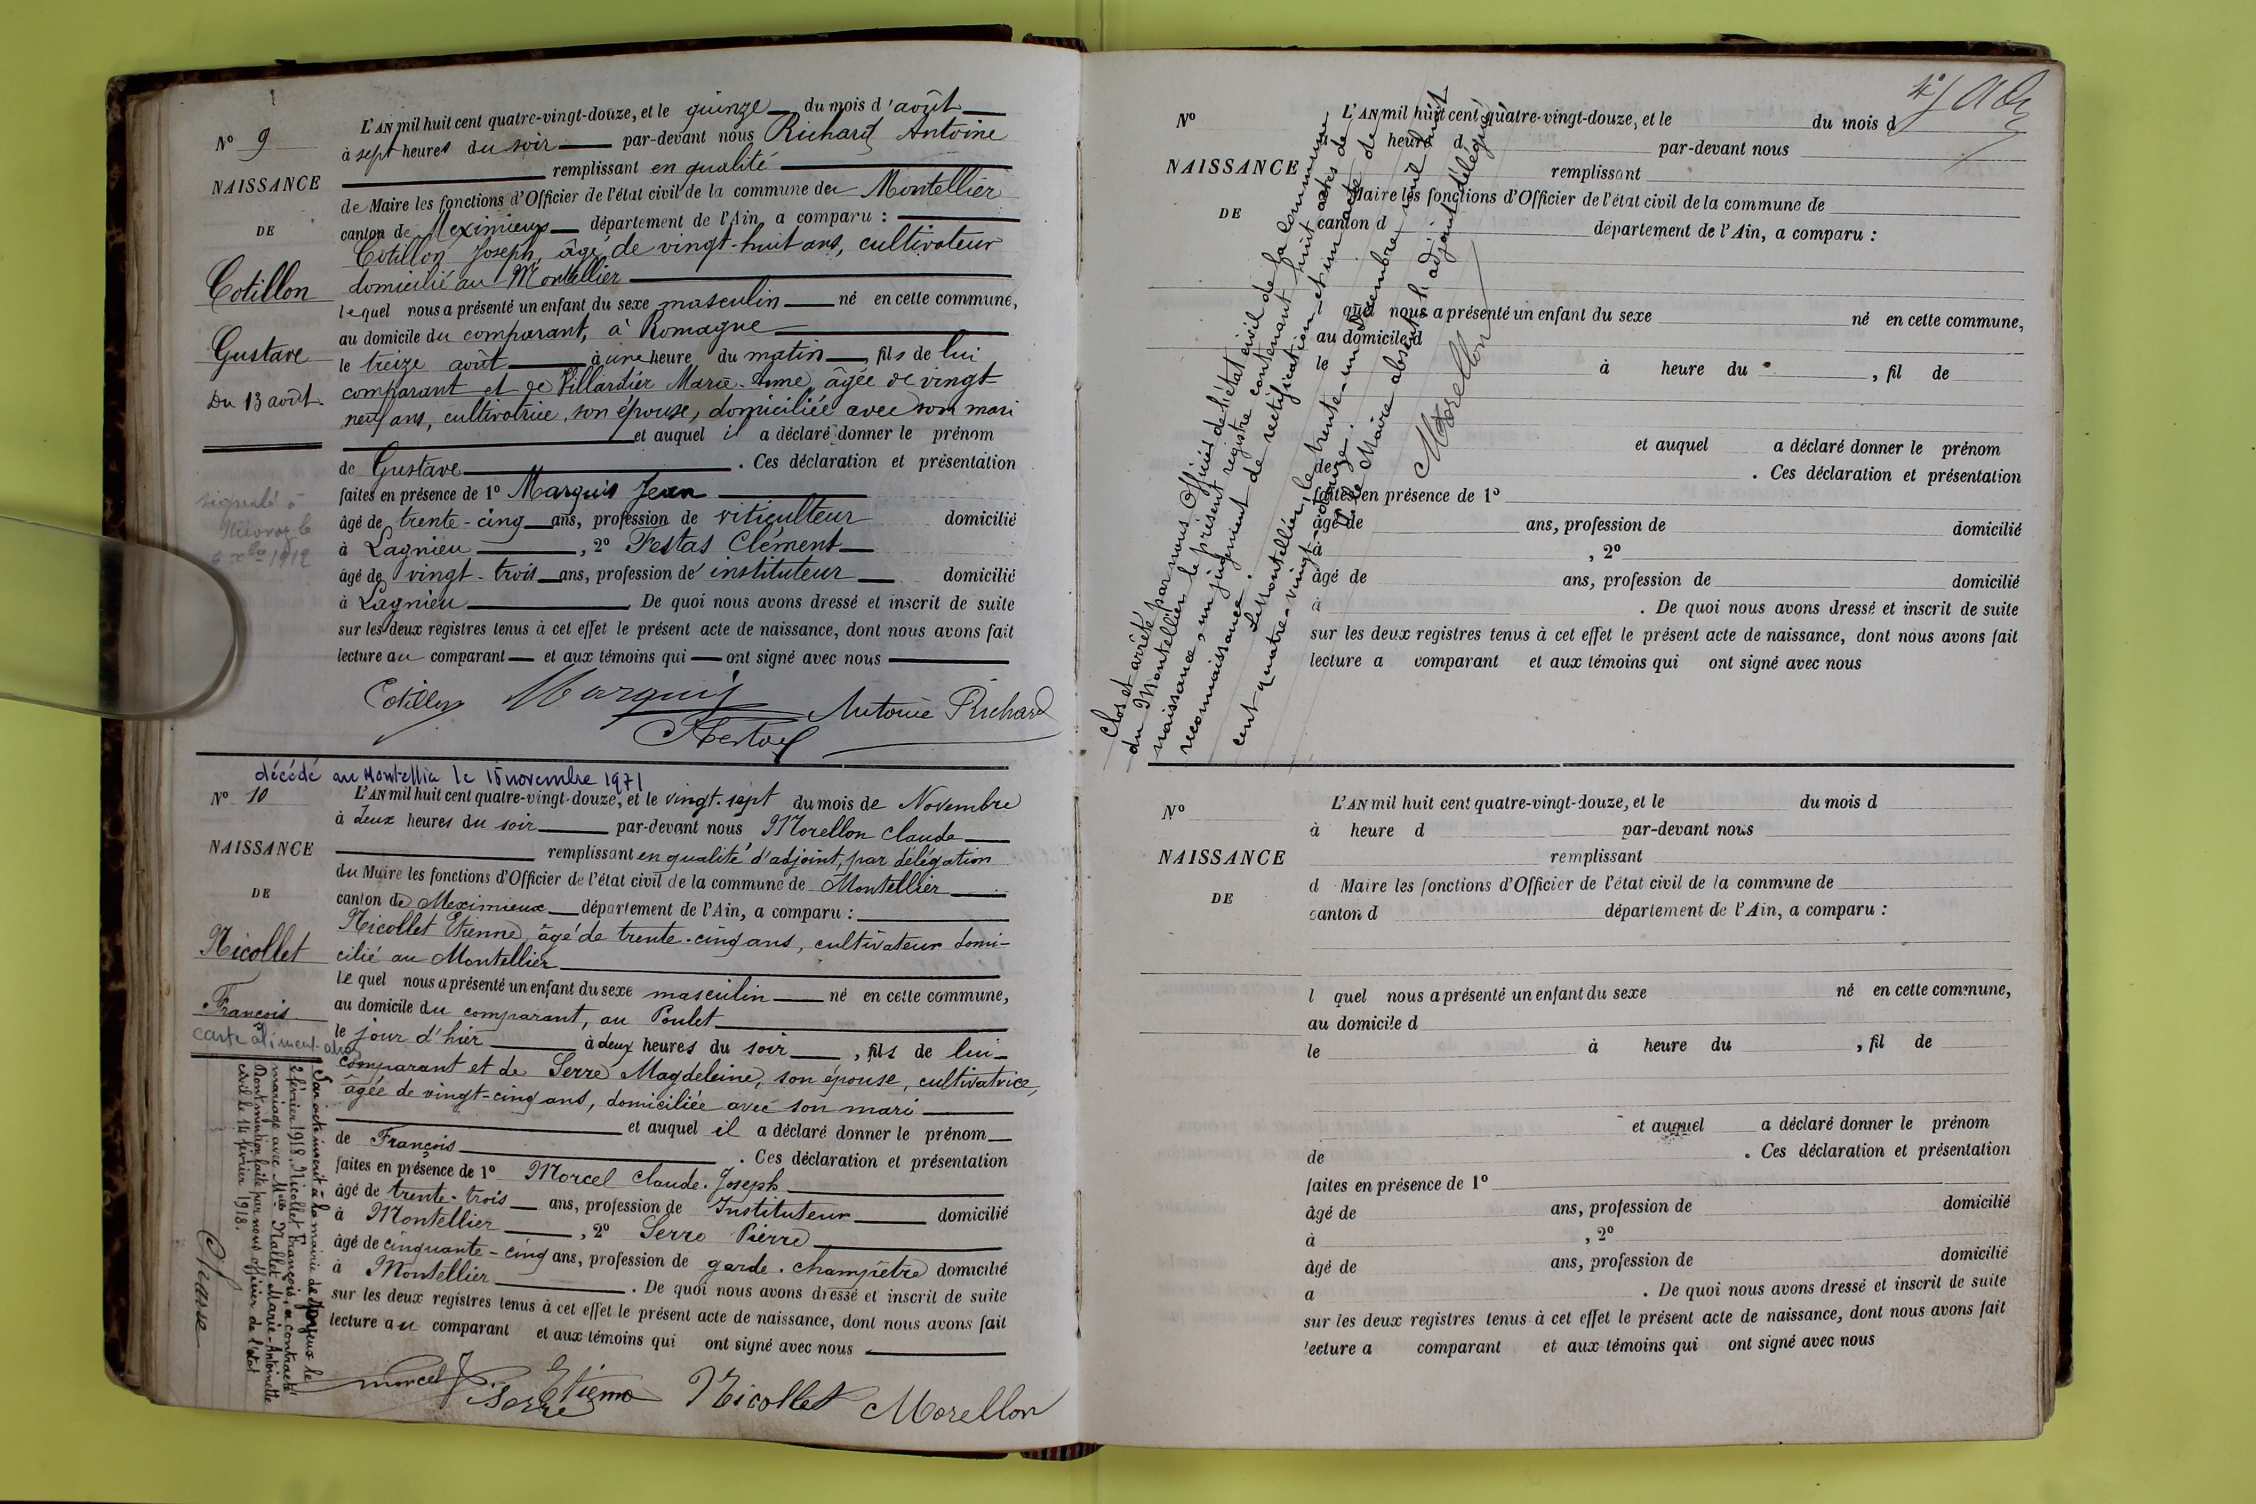 N° 9
NAISSANCE
DE
Cotillon
Gustave
Du 13 août
signalé à
6 Xbre 1912
L'AN mil huit cent quatre-vingt-douze, et le quinze du mois d'août
à sept heures du soir par-devant nous Richard Antoine
remplissant en qualité
de Maire les fonctions d'Officier de l'état civil de la commune de Montellier
canton de Meximieux département de l'Ain, a comparu :
Cotillon Joseph, âgé de vingt-huit ans, cultivateur
domicilié au Montellier
lequel nous a présenté un enfant du sexe masculin né en cette commune,
au domicile du comparant, à Romagne
le treize août à une heure du matin, fils de lui
comparant et de Villardier Marie-Anne, âgée de vingt-
neuf ans, cultivatrice, son épouse, domiciliée avec son mari
et auquel il a déclaré donner le prénom
de Gustave. Ces déclaration et présentation
faites en présence de 1° Marquis Jean
âgé de trente-cinq ans, profession de viticulteur domicilié
à Lagnieu, 2° Festas Clément
âgé de vingt-trois ans, profession de instituteur domicilié
à Lagnieu De quoi nous avons dressé et inscrit de suite
sur les deux registres tenus à cet effet le présent acte de naissance, dont nous avons fait
lecture au comparant et aux témoins qui ont signé avec nous
Cotillon Marquis Antoine Richard
Festas
décédé au Montellier le 15 novembre 1971
N° 10
NAISSANCE
DE
Nicollet
François
carte aliment.
Par acte inscrit à la mairie de Joyeux le
2 février 1918, Nicollet François, a contracté
mariage avec Mlle Mallet Marie-Antoinette
Dont mention faite par nous officier de l'état
civil le 14 février 1918.
Chasse
L'AN mil huit cent quatre-vingt-douze, et le vingt-sept du mois de Novembre
à deux heures du soir par-devant nous Morellon Claude
remplissant en qualité d'adjoint, par délégation
du Maire les fonctions d'Officier de l'état civil de la commune de Montellier
canton de Meximieux département de l'Ain, a comparu :
Nicollet Etienne, âgé de trente-cinq ans, cultivateur domi-
cilié au Montellier
lequel nous a présenté un enfant du sexe masculin né en cette commune,
au domicile du comparant, au Poulet
le jour d'hier à deux heures du soir, fils de lui
comparant et de Serre Magdeleine, son épouse, cultivatrice,
âgée de vingt-cinq ans, domiciliée avec son mari
et auquel il a déclaré donner le prénom
de François. Ces déclaration et présentation
faites en présence de 1° Morcel Claude-Joseph
âgé de trente-trois ans, profession de Instituteur domicilié
à Montellier, 2° Serre Pierre
âgé de cinquante-cinq ans, profession de garde-champêtre domicilié
à Montellier. De quoi nous avons dressé et inscrit de suite
sur les deux registres tenus à cet effet le présent acte de naissance, dont nous avons fait
lecture au comparant et aux témoins qui ont signé avec nous
Morcel J Serre Etienne Nicollet Morellon
N°
NAISSANCE
DE
L'AN mil huit cent quatre-vingt-douze, et le du mois d
heure d par-devant nous
remplissant
Maire les fonctions d'Officier de l'état civil de la commune de
canton d département de l'Ain, a comparu :
quel nous a présenté un enfant du sexe né en cette commune,
au domicile d
le à heure du , fil de
et auquel a déclaré donner le prénom
de . Ces déclaration et présentation
faites en présence de 1°
âgé de ans, profession de domicilié
à , 2°
âgé de ans, profession de domicilié
à . De quoi nous avons dressé et inscrit de suite
sur les deux registres tenus à cet effet le présent acte de naissance, dont nous avons fait
lecture a comparant et aux témoins qui ont signé avec nous
Clos et arrêté par nous Officier de l'état civil de la commune
du Montellier le présent registre contenant huit actes de
naissance, un jugement de rectification et un acte de
reconnaissance.
Le Montellier, le trente-un décembre mil huit
cent quatre-vingt-douze.
P. le Maire absent l'adjoint délégué
Morellon
N°
NAISSANCE
DE
L'AN mil huit cent quatre-vingt-douze, et le du mois d
à heure d par-devant nous
remplissant
d Maire les fonctions d'Officier de l'état civil de la commune de
canton d département de l'Ain, a comparu :
l quel nous a présenté un enfant du sexe né en cette commune,
au domicile d
le à heure du , fil de
et auquel a déclaré donner le prénom
de . Ces déclaration et présentation
faites en présence de 1°
âgé de ans, profession de domicilié
à , 2°
âgé de ans, profession de domicilié
a . De quoi nous avons dressé et inscrit de suite
sur les deux registres tenus à cet effet le présent acte de naissance, dont nous avons fait
lecture a comparant et aux témoins qui ont signé avec nous